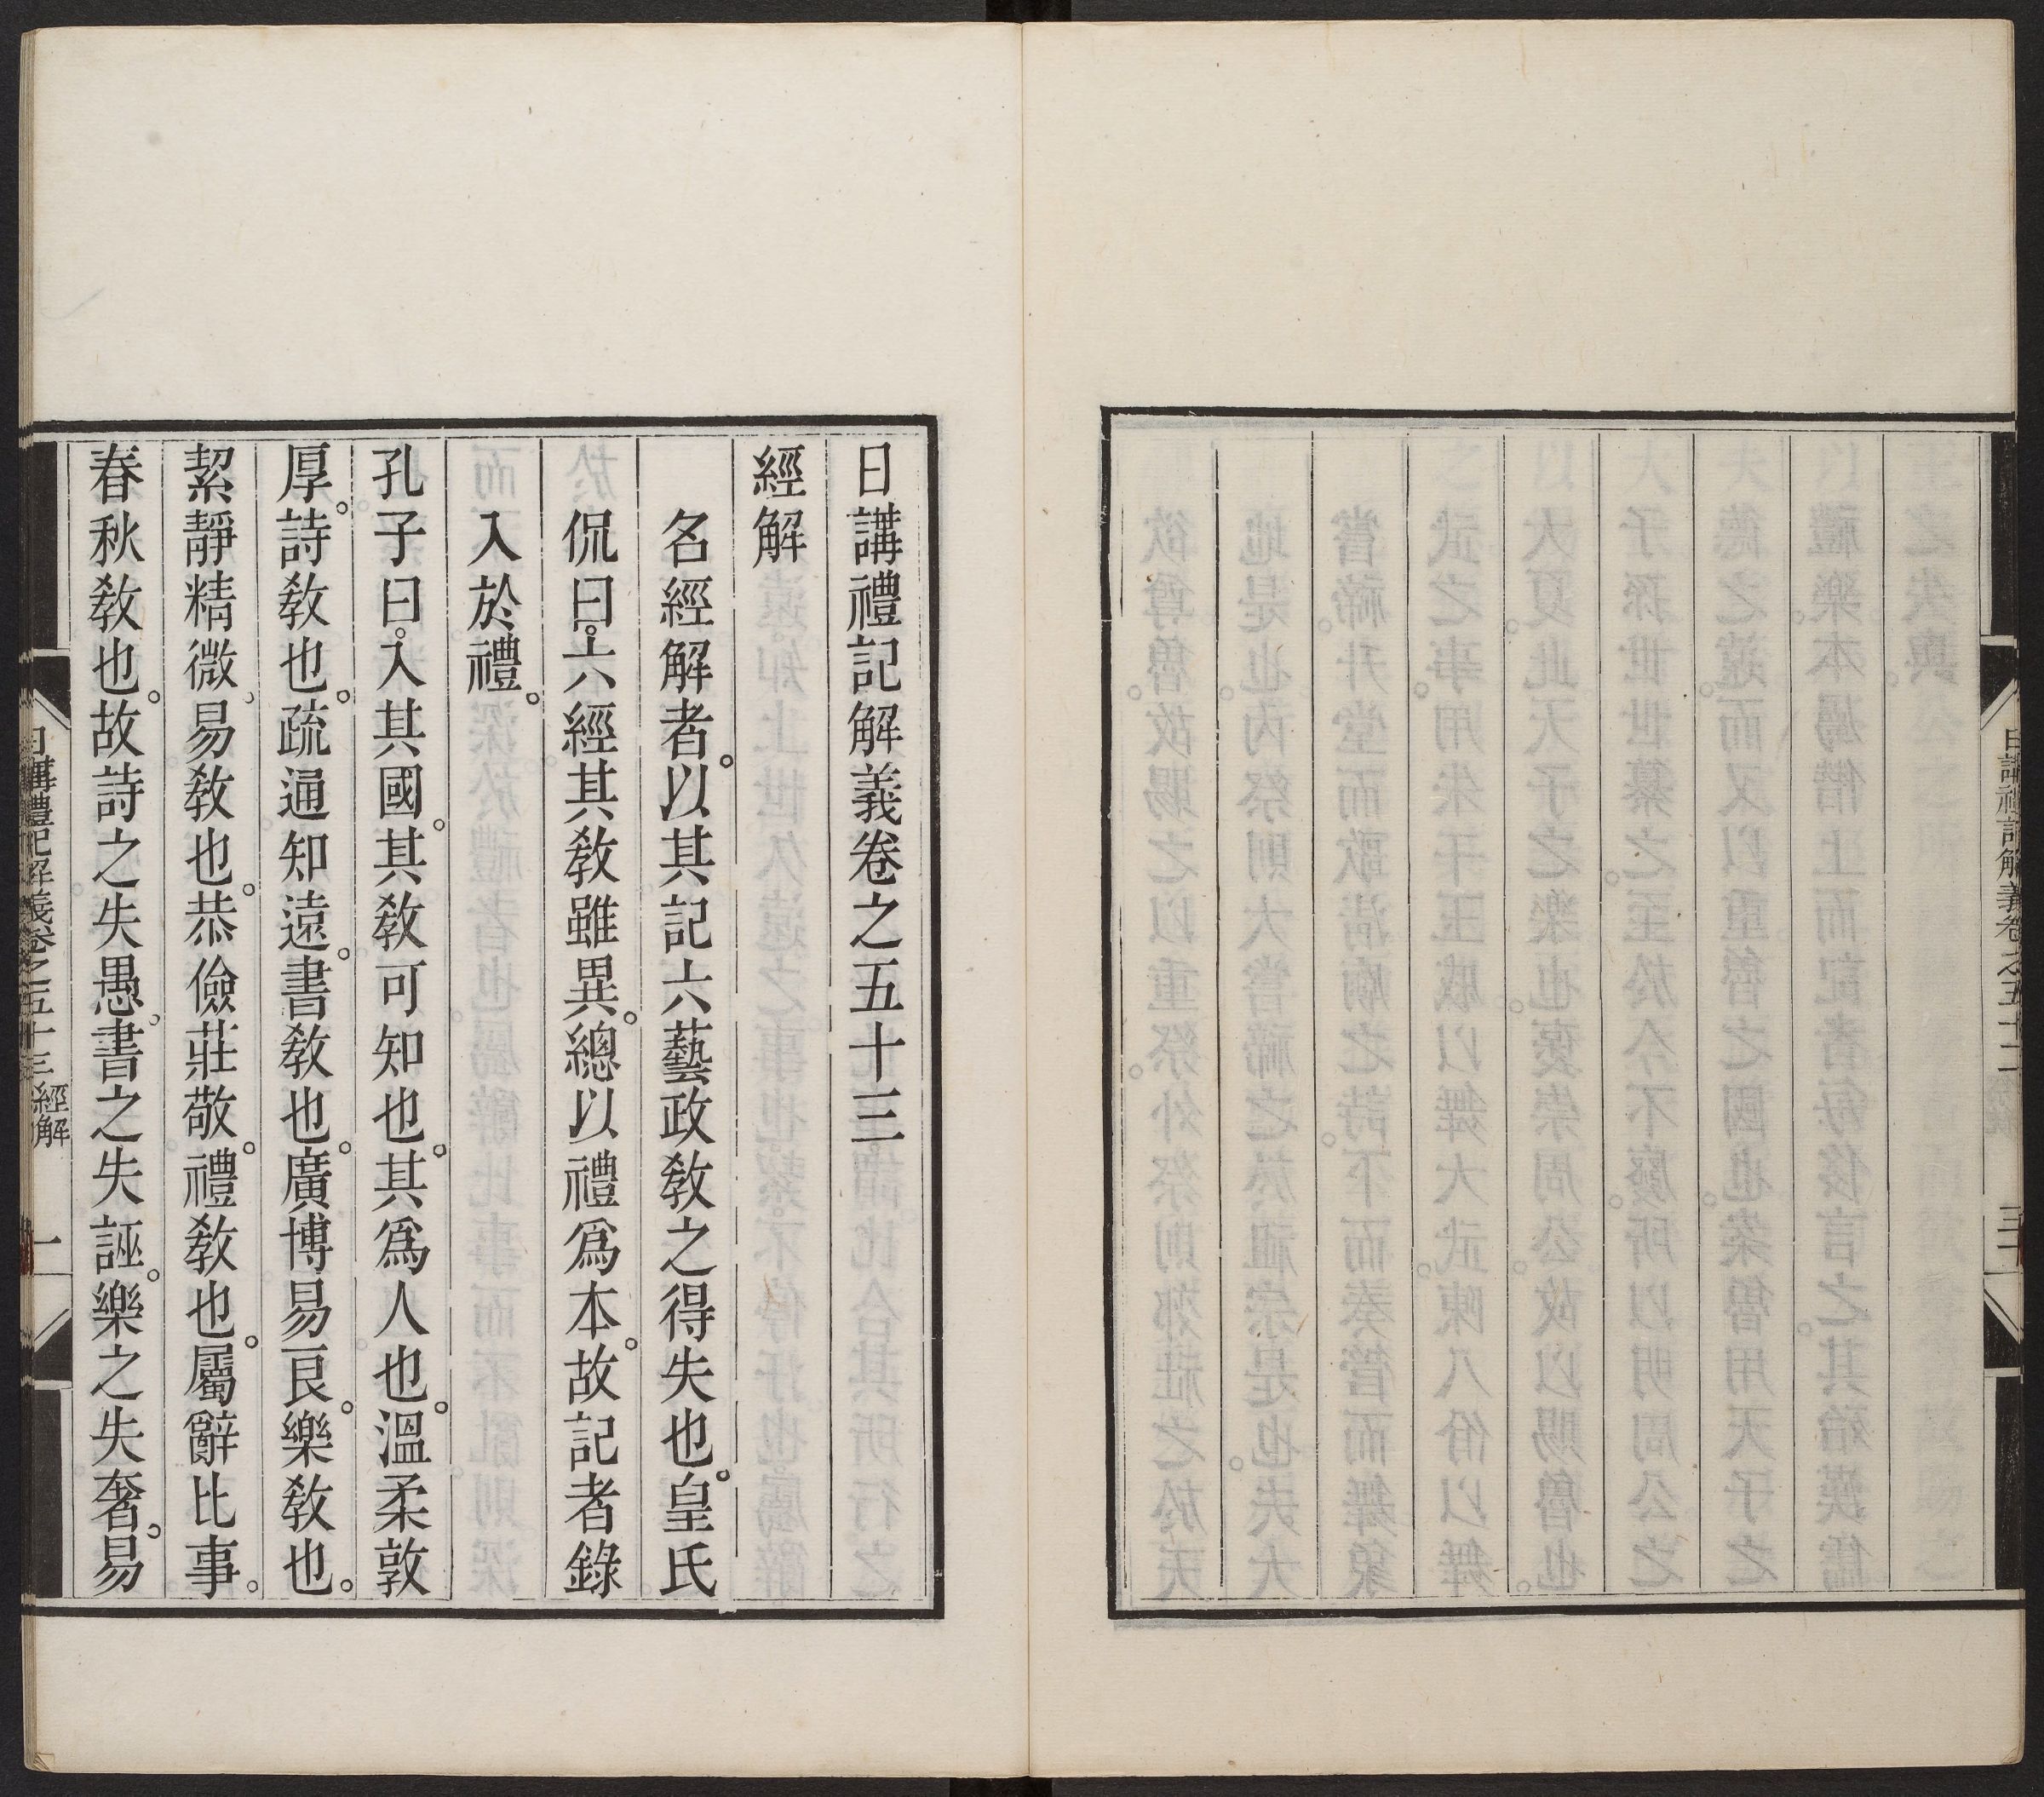 日講禮記解義卷之五十二
三十
日講禮記解義卷之五十三
經解
名經解者。以其記六藝政敎之得失也。皇氏
侃曰。六經其敎雖異。總以禮爲本。故記者錄
入於禮。
孔子曰。入其國。其敎可知也。其爲人也。溫柔敦
厚。詩敎也。疏通知遠。書敎也。廣博易良。樂敎也。
絜靜精微。易敎也。恭儉莊敬。禮敎也。屬辭比事。
春秋敎也。故詩之失愚。書之失誣。樂之失奢。易
日講禮記解義卷之五十三 經解 一